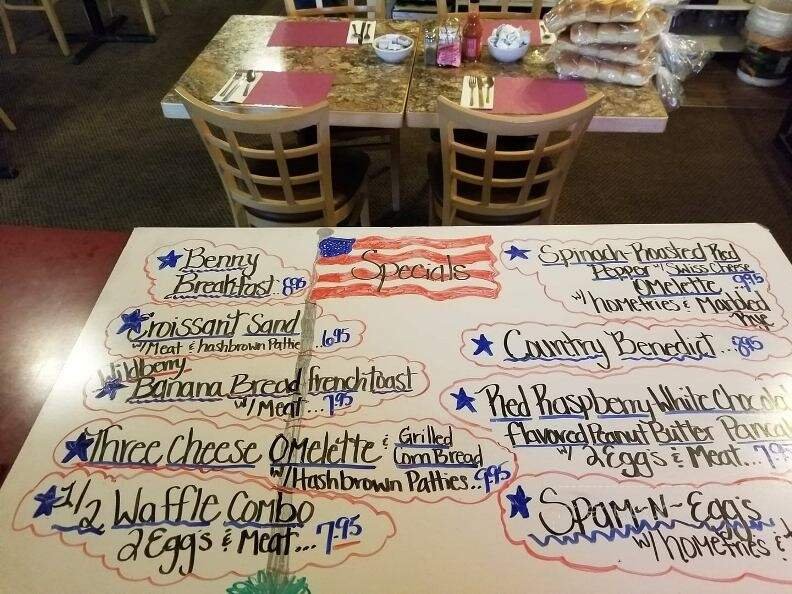 Specials
Benny
Breakfast... 8.95
Croissant Sand
w/Meat & hashbrown Patties ...6.95
Wildberry
Banana Bread frenchtoast
w/Meat...7.95
Three Cheese Omelette & Grilled
Corn Bread
w/Hashbrown Patties..9.95
1/2 Waffle Combo
2 Eggs & Meat...7.95
Spinach-Roasted Red
Pepper w/ Swiss Cheese
Omelette 9.95
w/homefries & Marbled
Rye
Country Benedict...8.95
Red Raspberry White Chocola
flavored Peanut Butter Pancak
w/ 2 Eggs & Meat...7.95
Spam-N-Eggs
w/homefries &